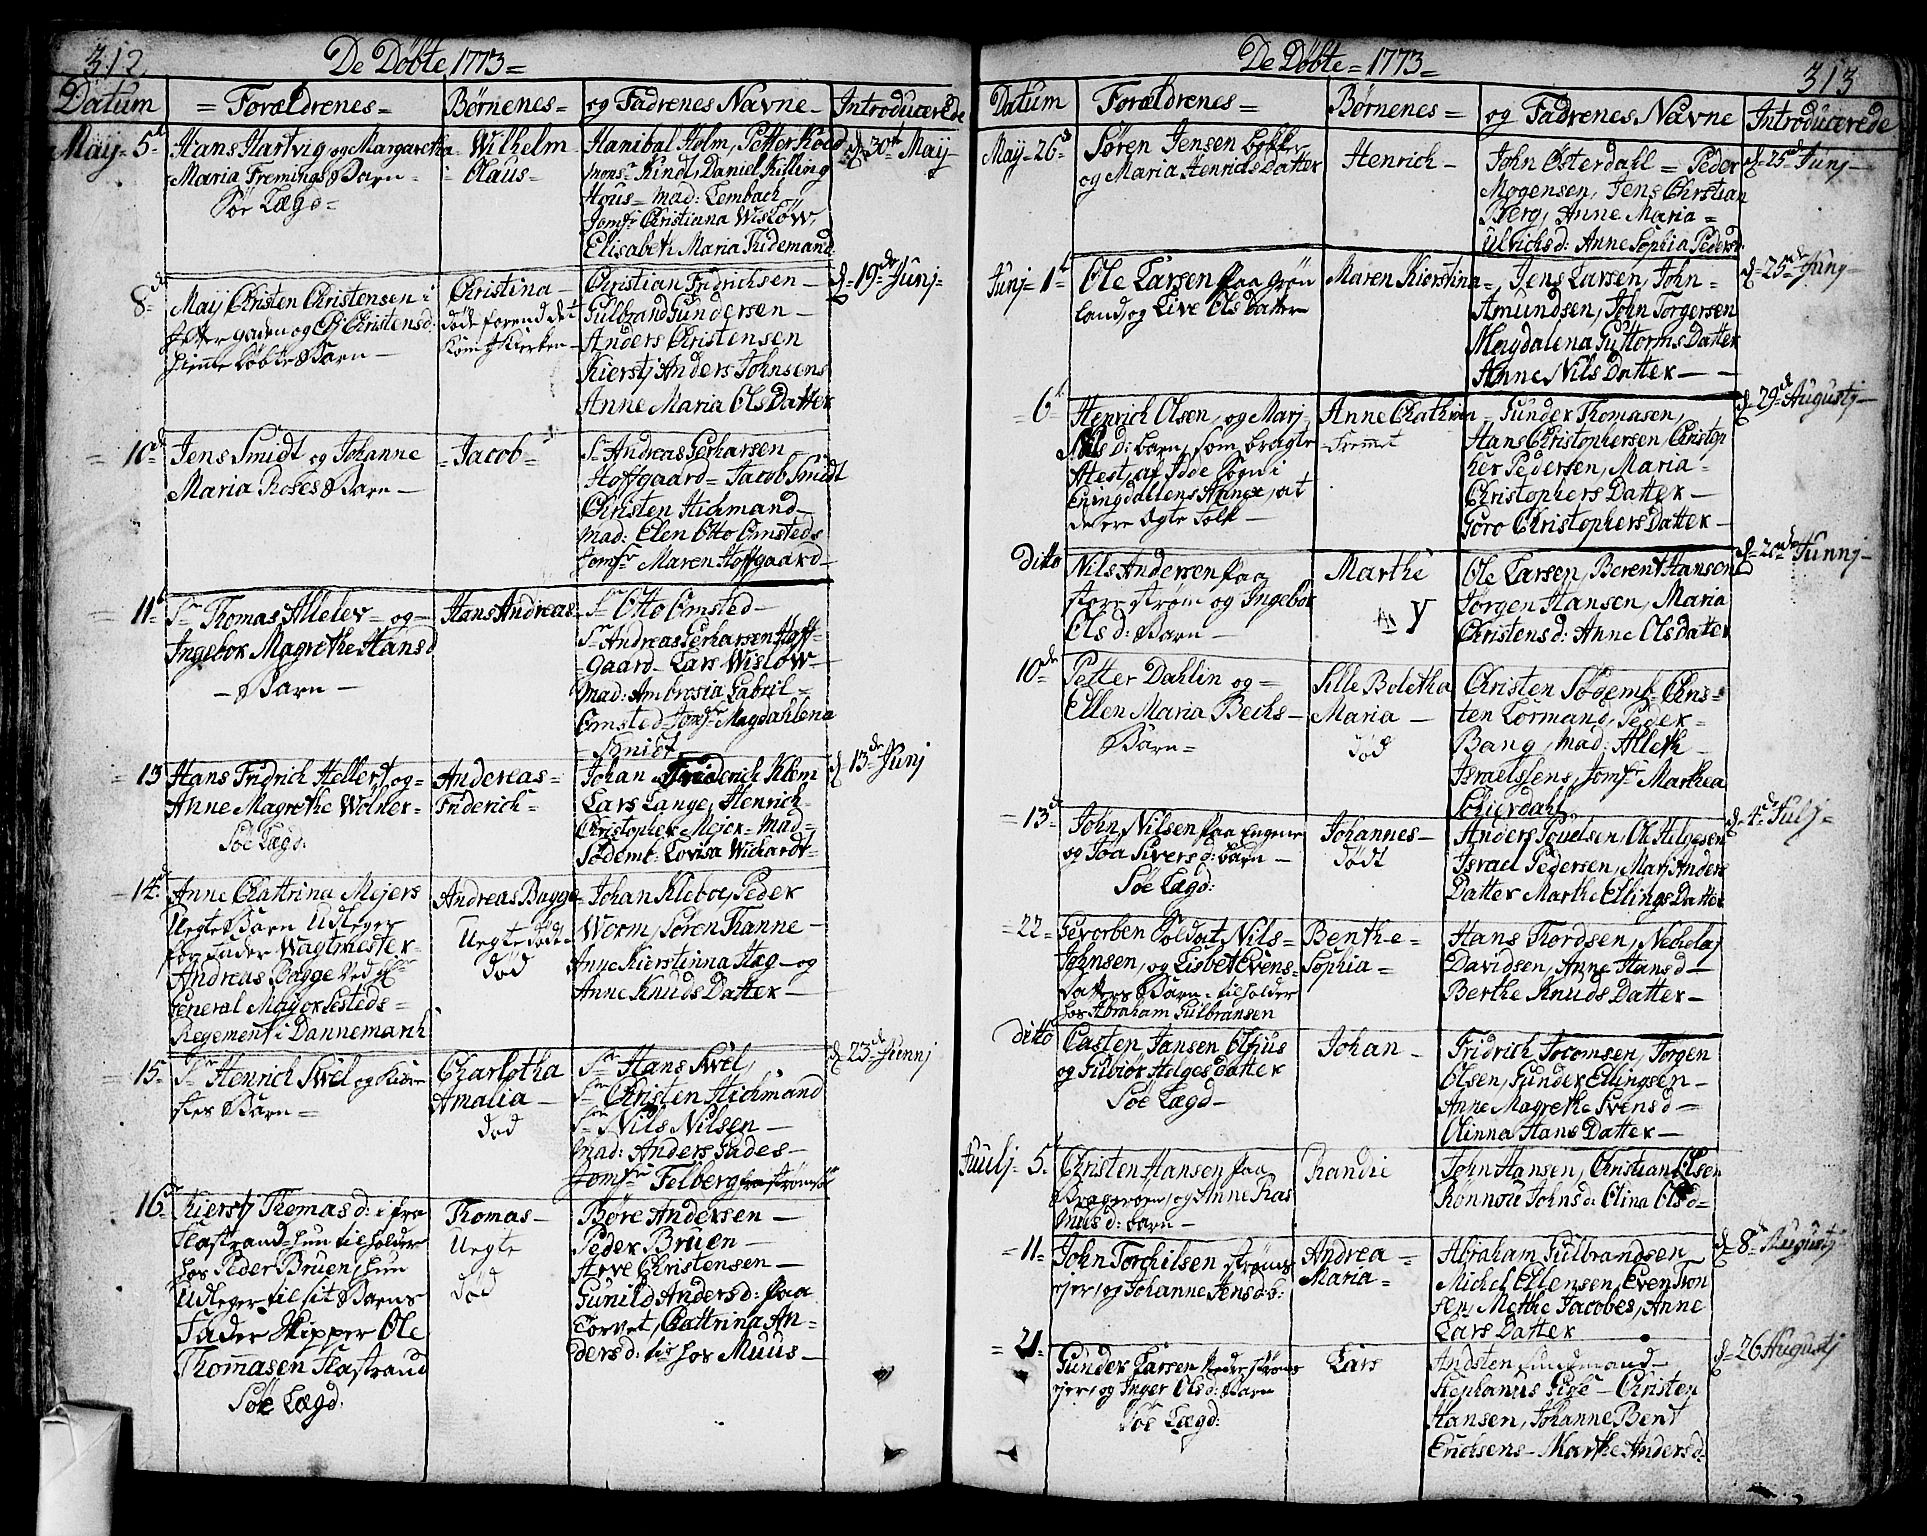 312.
De Døbte 1773=
Datum
= Forældrenes=
Børnenes=
og Fadrenes Navne-
Introducerede
Maij- 5t
Hans Hartvig og Margaretha
Maria Fremings Barn-
Søe Lægd-
Wilhelm
Claus-
Hanibal Holm, Petter
Mons. Kindt, Daniel Killing
Hous- Mad: Lembach
Jomfr Christianna Wisløw
Elisabeth Maria Tidemand
d-30t Maij-
8de
Maij Christen Christensen i
gaden og Christensd:
Barn-
Christina-
døde forend det
kom t Kierken-
Christian Fridrichsen-
Gulbrand Gundersen-
Anders Christensen
Kierstj Anders Johnsens
Anne Maria Ols Datter
d-19de Junj-
= 10d
Jens Smidt og Johanne
Maria Roses Barn-
-Jacob-
Sr Andreas Gerharsen
Hoffgaard= Jacob Smidt
Christen Hichmand-
Mad: Elen Otto Omsteds
Jomfr Maren Hoffgaard-
= 11t
Sr Thomas Allelev- og-
Ingebor Magrethe Hansd
- Barn -
Hans Andreas-
Sr Otto Omsted-
Sr Andreas Gerharsen Hoff=
gaard- Lars Wisløw-
Mad: Ambrosia Gabriel=
Omsted Jomfr Magdahlena
Smidt
= 13
Hans Fridrich Hellert og-
Anne Magrethe Wolner-
Søe Lægd:
Andereas-
Friderich-
Johan Friderich Klem
Lars Lange, Henrich-
Christopher Mejer- Mad-
Sødemb: Lovisa Wichardt-
d-13de Junj
- 14d
Anne Chattrina Mejers
Uegte Barn Udleger
for Fader Wagtmester-
Andreas Bagge ved
General Major Lesteds-
Regement i Dannemark
Andreas Bagge-
Uegte døde-
død
Johan Kleboe, Peder
Worm, Søren Thanne-
Anne Kierstinna Hæg- og
Anne Knuds Datter-
= 15-
Sr Henrich Swel og
Barn-
Charlotha
Amalia-
død
Sr Hans Swel,
Sr Christen Hichmand
Sr Nils Nilsen-
Mad: Anders Gudes-
Jomfr Felberg fra Strømsøe
d- 23de Junnj
16d
Kierstj Thomasd: i fra
Flastrand- hun tilholder
hos Peder Bruen, hun
Udleger til sit Barns
Fader Skipper Ole
Thommasen Flastrand
Søe Lægd:
Thomas-
Uegte
død
Børe Andersen-
Peder Bruen-
Arve Christensen-
Gunild Andersd: paa
Torvet, Cattrina An-
dersd: til hos Muus-
313
De Døbte = 1773=
Datum
Forældrenes=
Børnenes=
og Fadrenes Navne
Introducerede
Maij- 26d
Søren Jensen
og Maria Henrichs Datter
Henrich-
John Osterdahl= Peder
Mogensen, Jens Christian
Berg, Anne Maria=
Ulrichsd: Anne Sophia Pedersd.
d-25de Junj-
Junj- 1t
Ole Larsen paa Grøn
land og Live Ols Datter
Maren Kierstina-
Jens Larsen, John-
Amundsen, John Torgersen
Magdalena Guttorms Datter
Anne Nils Datter- -
d-25de Junj-
= 6t
Henrich Olsen, og Marj-
Nilsd: barn, som bragte
Atest, af Idde Sogn i
Eningdallens Annex, at
de ere Ægte Folk-
Anne Chathrin
-Fremet
Gunder Thomasen,
Hans Christophersen Christop
her Pedersen, Maria-
Christophers Datter-
Goro Christophers Datter-
d-29de Augustj-
ditto
Nils Andersen paa
store strøm og Ingebor
Olsd: Barn-
Marthe
Y
Ole Larsen, Berent Hansen
Jorgen Hansen, Maria
Christensd: Anne Olsdatter
d-2nde Junnj-
10de
Petter Dahlin og=
Ellen Maria Bechs-
Barn-
Sille Boletha
Maria-
død
Christen Sødemb- Chris=
ten Lormand, Peder-
Bang, Mad: Alleth-
Israelslens, Jomfr Marthea
Schierdahl
= 13d
John Nilsen paa Engene
og Joa Siversd: barn-
Søe Lægd:
Johannes-
dødt
Anders Povelsen, Ole Helgesen
Israel Pedersen, Marj Anders
Datter Marthe Ellings Datter
d-4d Julj-
= 22-
Gevorben Soldat Nils-
Johnsen, og Lisbet Evens-
datters Barn- tilholder
hos Abraham Gulbransen
Benthe-
Sophia-
Hans Thordsen, Nechelaj
Davidsen, Anne Hansd-
Berthe Knuds Datter-
ditto
Casten Jansen Olfius
og Gubiør Helges Datter
Søe Lægd-
Johan-
Fridrich Jocomsen, Jorgen
Olsen, Gunder Ellingsen-
Anne Magrethe Svensd-
Olinna Hans Datter-
Juulj- 5t
Christen Hansen paa
Bragernes, og Anne Ras
musd: barn-
Randie
John Hansen, Christian Olsen
Rønnou Johnsd: Olina Olsd-
- 11-
John Torchilsen Strøms
ejer, og Johanne Jensd: b:
Andrea-
Maria-
Abraham Gulbrandsen
Michel Ellensen, Even Tron
sen, Methe Jacobes, Anne
Lars Datter
d- 8d Augustj
= 21-
Gunder Larsen Strøms
ejer, og Inger Olsd: Barn
Søe Lægd:
Lars
Andsten
Stephanus Gise- Christen
Hansen, Johanne Bent
Erichsens- Marthe Andersd-
d- 26 Augustj